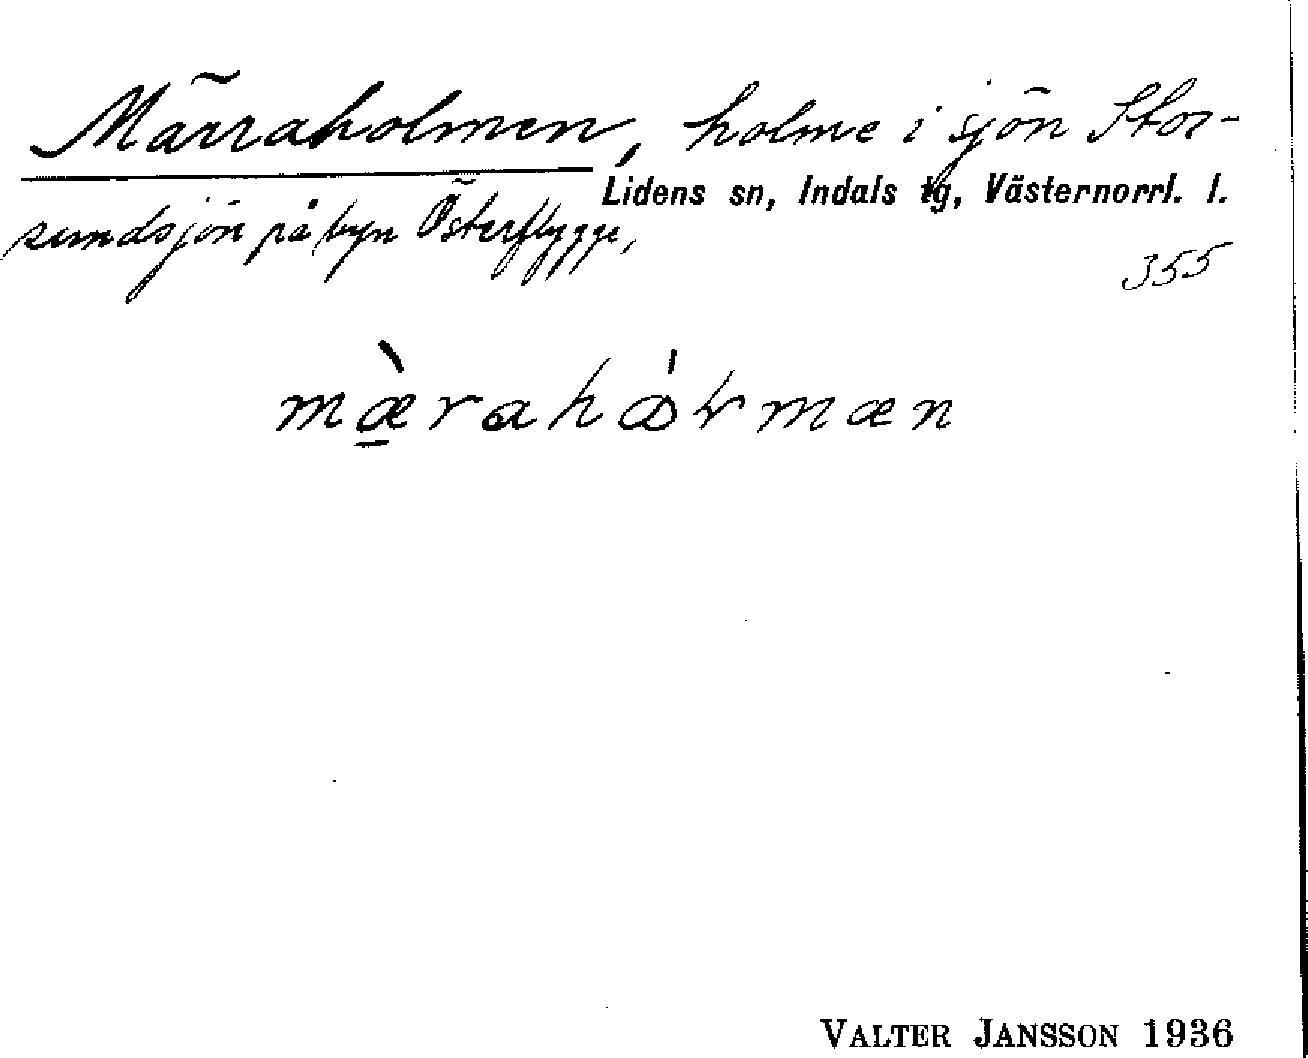 Märraholmen, holme i sjön Stor-
Lidens sn, Indals tg, Västernorrl. l.
sundsjön på byn Österflygge,
355
mæ̀rahɷ́ɽmæn
VALTER JANSSON 1936